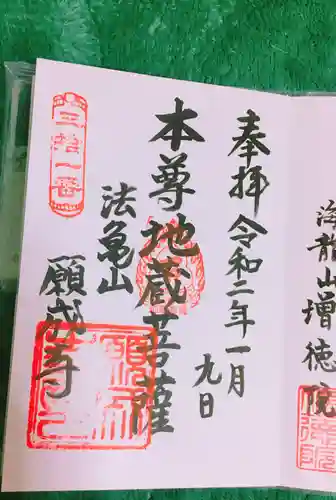 海龍山増徳院
奉拝令和二年一月
九日
本尊地蔵菩薩
法亀山
願成寺
三拾一番